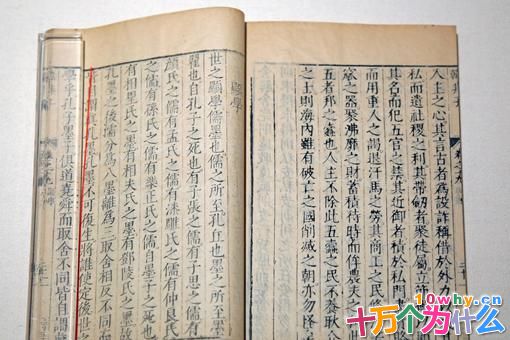 韓非子
人主之心其言古者為設詐稱借於外力
而遺社稷之利其帶劍者聚徒屬立
其名而犯五官之禁其近御者積於私門
而用重人之謁退汗馬之勞其商工之民修
窳之器聚沸靡之財蓄積待時而侔農夫
五者邦之蠹也人主不除此五蠹之民不養耿
之士則海內雖有破亡之國削滅之朝亦勿怪
顯學
世之顯學儒墨也儒之所至孔丘也墨之所至
翟也自孔子之死也有子張之儒有子思之儒有
顏氏之儒有孟氏之儒有漆雕氏之儒有仲良氏
之儒有孫氏之儒有樂正氏之儒自墨子之死也
有相里氏之墨有相夫氏之墨有鄧陵氏之墨
孔墨之後儒分為八墨離為三取舍相反不同
謂真孔墨孔墨不可復生將誰使定後世之
學乎孔子墨子俱道堯舜而取舍不同皆自謂
10why.cn
十万个为什么